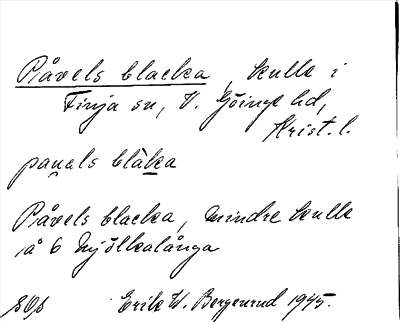 Påvels blacka, kulle i
Finja sn, V. Göinge hd,
Krist. l.
pau̯als blàka
Påvels blacka, mindre kulle
å 6 Mjölkalånga
Erik W. Bergenrud 1945.